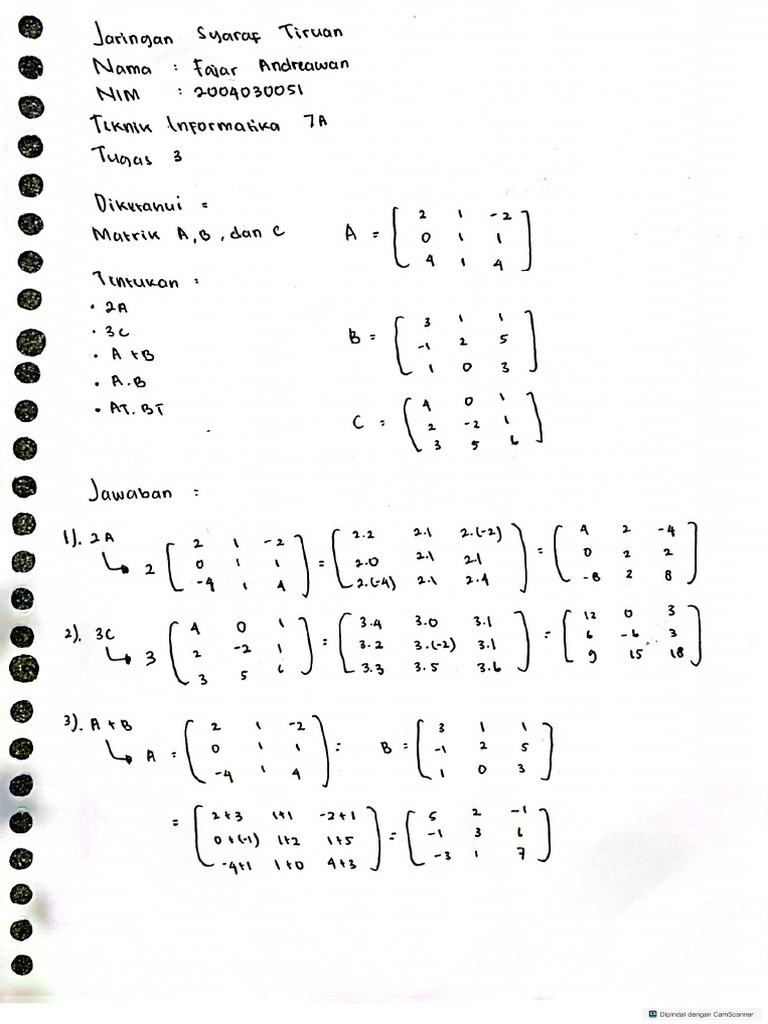 Jaringan Syaraf Tiruan
Nama : Fajar Andreawan
NIM : 2004030051
Teknik Informatika 7A
Tugas 3
Diketahui =
Matrik A, B, dan C
A = [ 2 1 -2
0 1 1
4 1 4 ]
Tentukan :
• 2A
• 3C
• A + B
• A.B
• AT. BT
B = [ 3 1 1
-1 2 5
1 0 3 ]
C = [ 4 0 1
2 -2 1
3 5 6 ]
Jawaban :
1). 2A
↳ 2 [ 2 1 -2 ] = [ 2.2 2.1 2.(-2) ] = [ 4 2 -4 ]
[ 0 1 1 ] [ 2.0 2.1 2.1 ] [ 0 2 2 ]
[ -4 1 4 ] [ 2.(-4) 2.1 2.4 ] [ -8 2 8 ]
2). 3C
↳ 3 [ 4 0 1 ] = [ 3.4 3.0 3.1 ] = [ 12 0 3 ]
[ 2 -2 1 ] [ 3.2 3.(-2) 3.1 ] [ 6 -6 3 ]
[ 3 5 6 ] [ 3.3 3.5 3.6 ] [ 9 15 18 ]
3). A + B
↳ A = [ 2 1 -2 ] = B = [ 3 1 1 ]
[ 0 1 1 ] [ -1 2 5 ]
[ -4 1 4 ] [ 1 0 3 ]
= [ 2+3 1+1 -2+1 ] = [ 5 2 -1 ]
[ 0+(-1) 1+2 1+5 ] [ -1 3 6 ]
[ -4+1 1+0 4+3 ] [ -3 1 7 ]
Dipindai dengan CamScanner